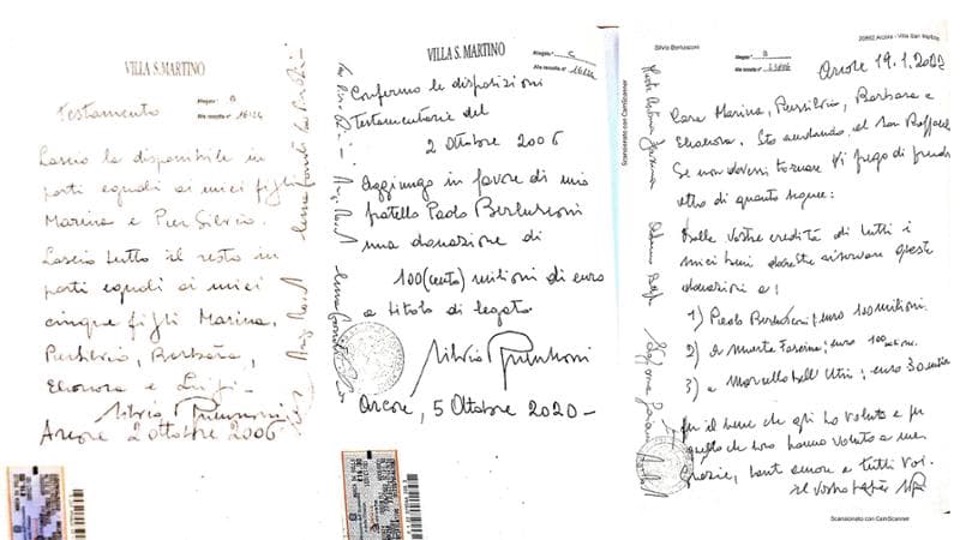 VILLA S. MARTINO
Allegato " B
Alla raccolta n° 16126
Testamento
Lascio la disponibile in
parti eguali ai miei figli
Marina e Pier Silvio.
Lascio tutto il resto in
parti eguali ai miei
cinque figli Marina,
Piersilvio, Barbara,
Eleonora e Luigi -
Silvio Berlusconi
Arcore 2 ottobre 2006
VILLA S. MARTINO
Allegato " C
Alla raccolta n° 16126
Confermo le disposizioni
testamentarie del
2 Ottobre 2006
Aggiungo in favore di mio
fratello Paolo Berlusconi
una donazione di
100 (cento) milioni di euro
a titolo di legato
Silvio Berlusconi
Arcore, 5 Ottobre 2020 -
Silvio Berlusconi
20862 Arcore - Villa San Martino
Allegato " B
Alla raccolta n°
Arcore 19.1.2022
Cara Marina, Piersilvio, Barbara e
Eleonora. Sto andando al San Raffaele
Se non dovessi tornare Vi prego di prendere
atto di quanto segue:
Dalle vostre eredità di tutti i
miei beni dovreste riservare queste
donazioni a:
1) Paolo Berlusconi; euro 100 milioni.
2) a Marta Fascina; euro 100 milioni.
3) a Marcello Dell'Utri; euro 30 milioni
per il bene che gli ho voluto e per
quello che loro hanno voluto a me.
Grazie, tanto amore a tutti voi.
il vostro papà
Scansionato con CamScanner
Scansionato con CamScanner